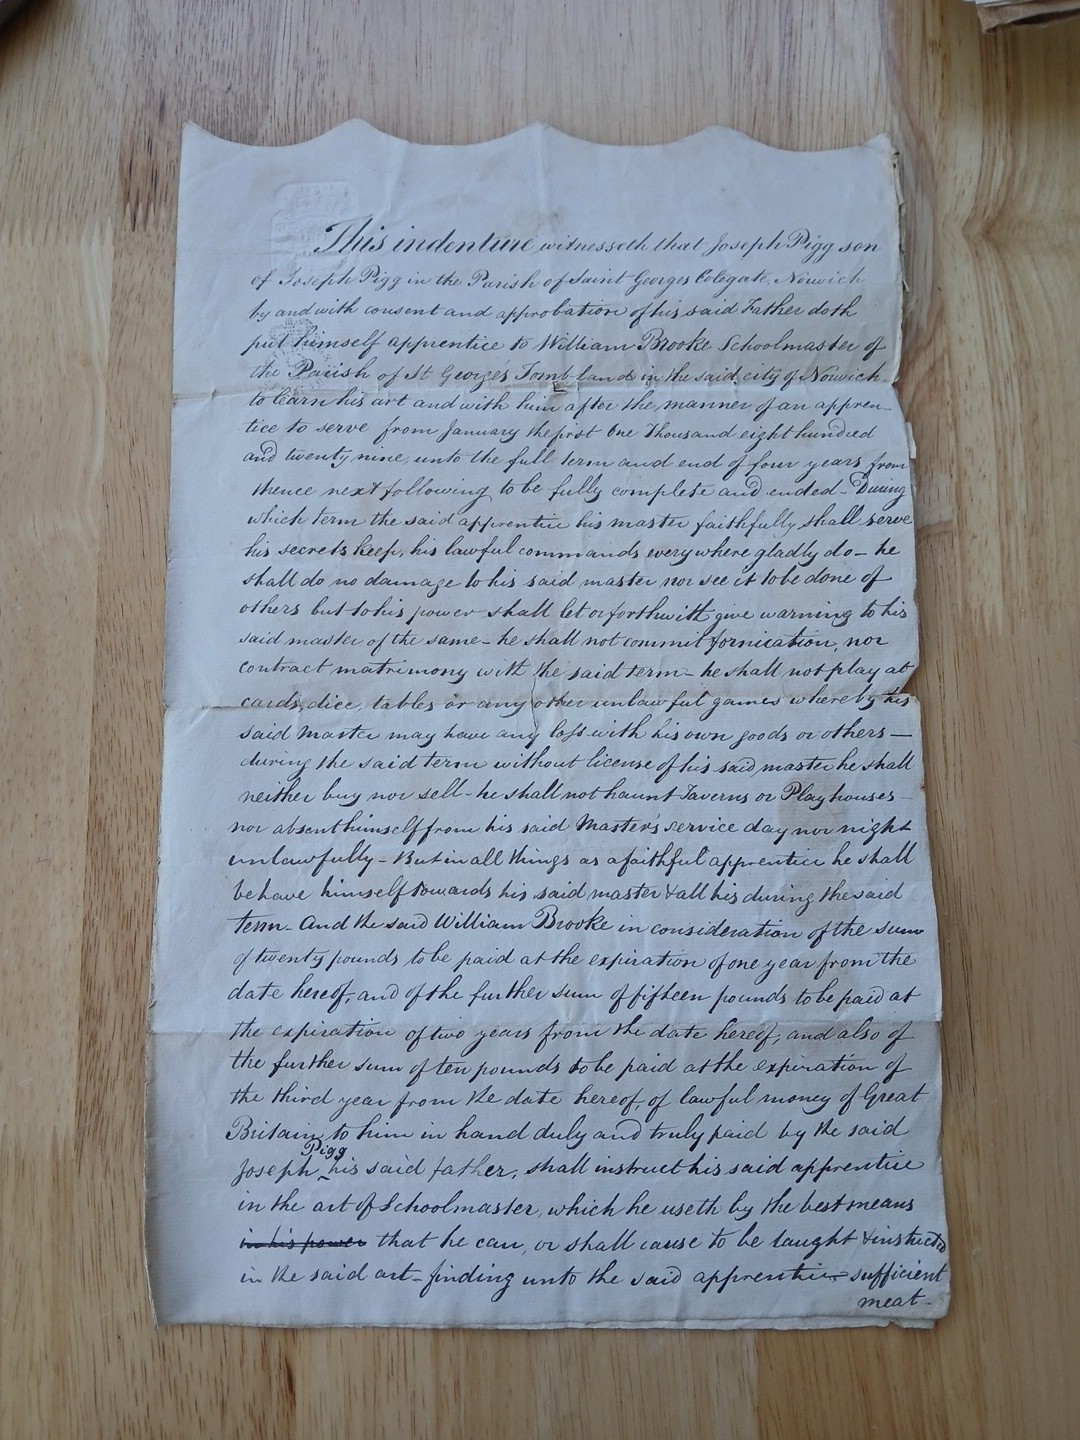 This indenture witnesseth that Joseph Pigg son
of Joseph Pigg in the Parish of Saint Georges Colegate, Norwich
by and with consent and approbation of his said Father doth
put himself apprentice to William Brooke Schoolmaster of
the Parish of St Georges Tombland in the said city of Norwich
to learn his art and with him after the manner of an appren-
tice to serve from January the first One Thousand eight hundred
and twenty nine, unto the full term and end of four years from
thence next following to be fully complete and ended - During
which term the said apprentice his master faithfully shall serve
his secrets keep, his lawful commands everywhere gladly do - he
shall do no damage to his said master nor see it to be done of
others but to his power shall let or forthwith give warning to his
said master of the same - he shall not commit fornication, nor
contract matrimony with the said term - he shall not play at
cards, dice, tables or any other unlawful games whereby his
said Master may have any loss with his own goods or others -
during the said term without license of his said master he shall
neither buy nor sell - he shall not haunt Taverns or Playhouses -
nor absent himself from his said Master's service day nor night
unlawfully - But in all things as a faithful apprentice he shall
behave himself towards his said master & all his during the said
term - And the said William Brooke in consideration of the sum
of twenty pounds to be paid at the expiration of one year from the
date hereof, and of the further sum of fifteen pounds to be paid at
the expiration of two years from the date hereof; and also of
the further sum of ten pounds to be paid at the expiration of
the third year from the date hereof, of lawful money of Great
Britain to him in hand duly and truly paid by the said
Joseph Pigg his said father, shall instruct his said apprentice
in the art of Schoolmaster, which he useth by the best means
in his power that he can, or shall cause to be taught & instructed
in the said art - finding unto the said apprentice sufficient
meat -